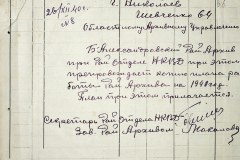 26/XII 40г.
№8
г. Николаев
Шевченко 64
Областному Архивному Управлению
Б. Александровский Рай Архив
при Рай Отделе НКВД при этом
препровождает копию плана ра-
боты рай Архива на 1940 год.
План при этом прилагается.
Секретарь Рай Отдела НКВД
Зав. Рай Архивом